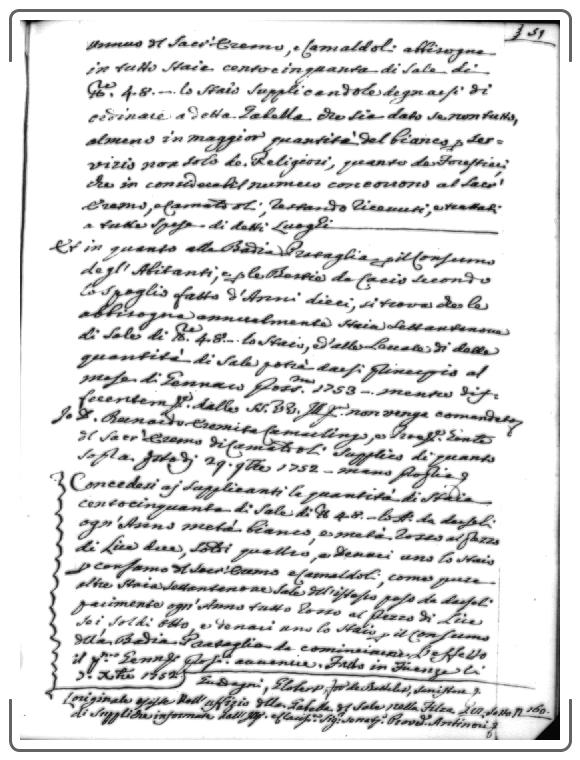 51
annuo del Sacr'Eremo, e Camaldoli abbisogne
in tutto Staia centocinquanta di Sale di
lb. 48.— lo Staio Supplicandole degnarsi di
ordinare a detta Tabella che sia dato se non tutto,
almeno in maggior quantità del bianco p ser=
vizio non solo de Religiosi, quanto de Forestieri,
che in considerabil numero concorrono al Sacr'
Eremo, e Camaldoli, restando ricevuti, e trattati
a tutte Spese di detti Luoghi
Et in quanto alla Badia Prataglia p il Consumo
degl'Abitanti, e p le Bestie da Cacio secondo
lo Spoglio fatto d'Anni dieci, si trova che le
abbisogna annualmente Staia Settantanove
di Sale di lb. 48.— lo Staio, e d'alle Levate di dette
quantità di Sale potrà darsi principio al
mese di Gennaio 1753 — mentre dif=
ferentem.te dalle non venga comandato
Io D. Bernardo Eremita Camaldolese, e
del Sacr'Eremo di Camaldoli Supplico di quanto
sopra. 29. 9bre 1752 — mano propria
Concedesi a i Supplicanti la quantità di Staia
centocinquanta di Sale di lb 48.— lo St. da darseli
ogn'Anno metà bianco, e metà rosso al prezzo
di Lire due, Soldi quattro, e denari uno lo Staio
p consumo del Sacr'Eremo e Camaldoli, come pure
altre Staia Settantanove Sale dell'istesso peso da darseli
parimente ogn'Anno tutto rosso al prezzo di Lire
Soldi otto, e denari uno lo Staio p il Consumo
della Badia Prataglia da cominciarne l'effetto
il p.mo Genn. pross. avvenire. Fatto in Firenze li
Xbre 1752
L'originale esiste nell'uffizio della Gabella del Sale nella Filza sotto N. 160.
di Suppliche informate dall'Ill. e Clariss. Sig. Senat. Provv. Antinori